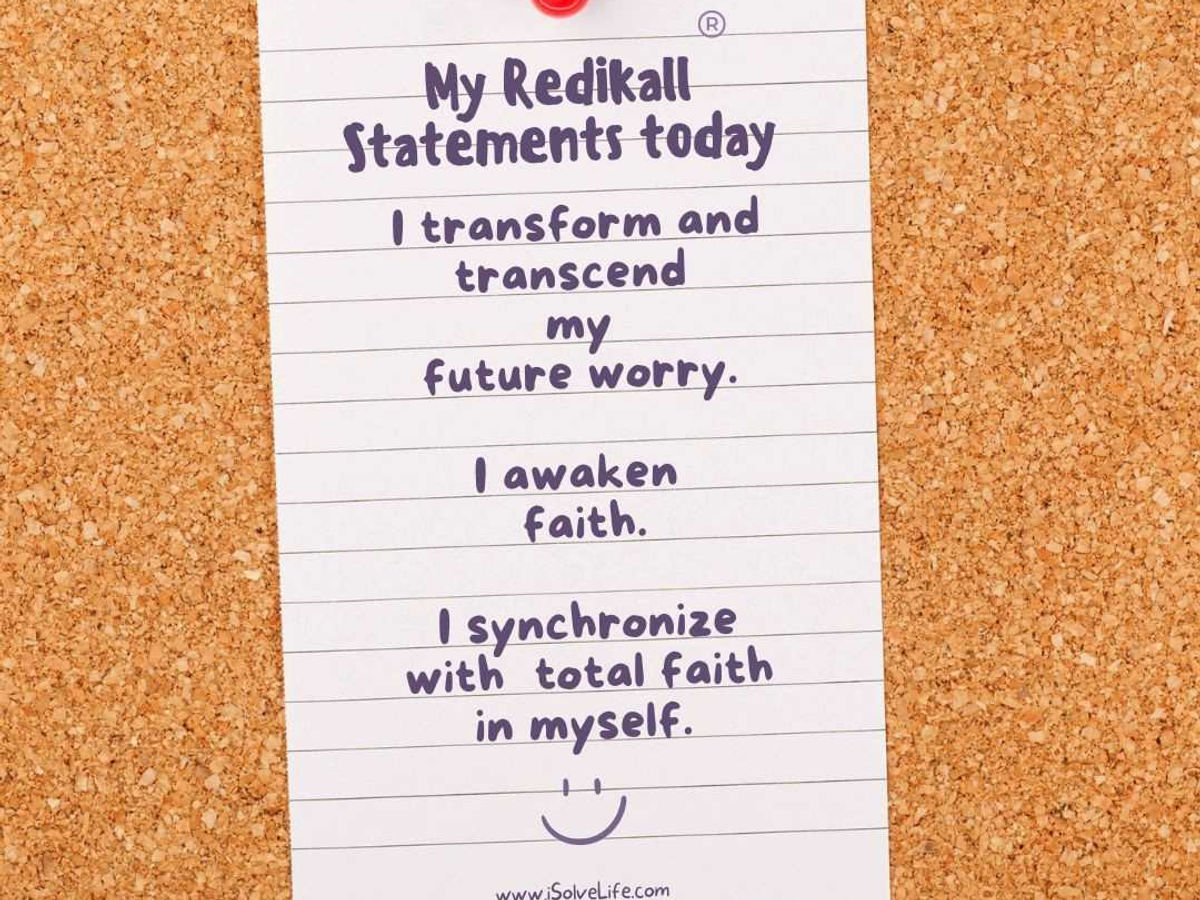 ®
My Redikall
Statements today
I transform and
transcend
my
future worry.
I awaken
faith.
I synchronize
with total faith
in myself.
www.iSolveLife.com